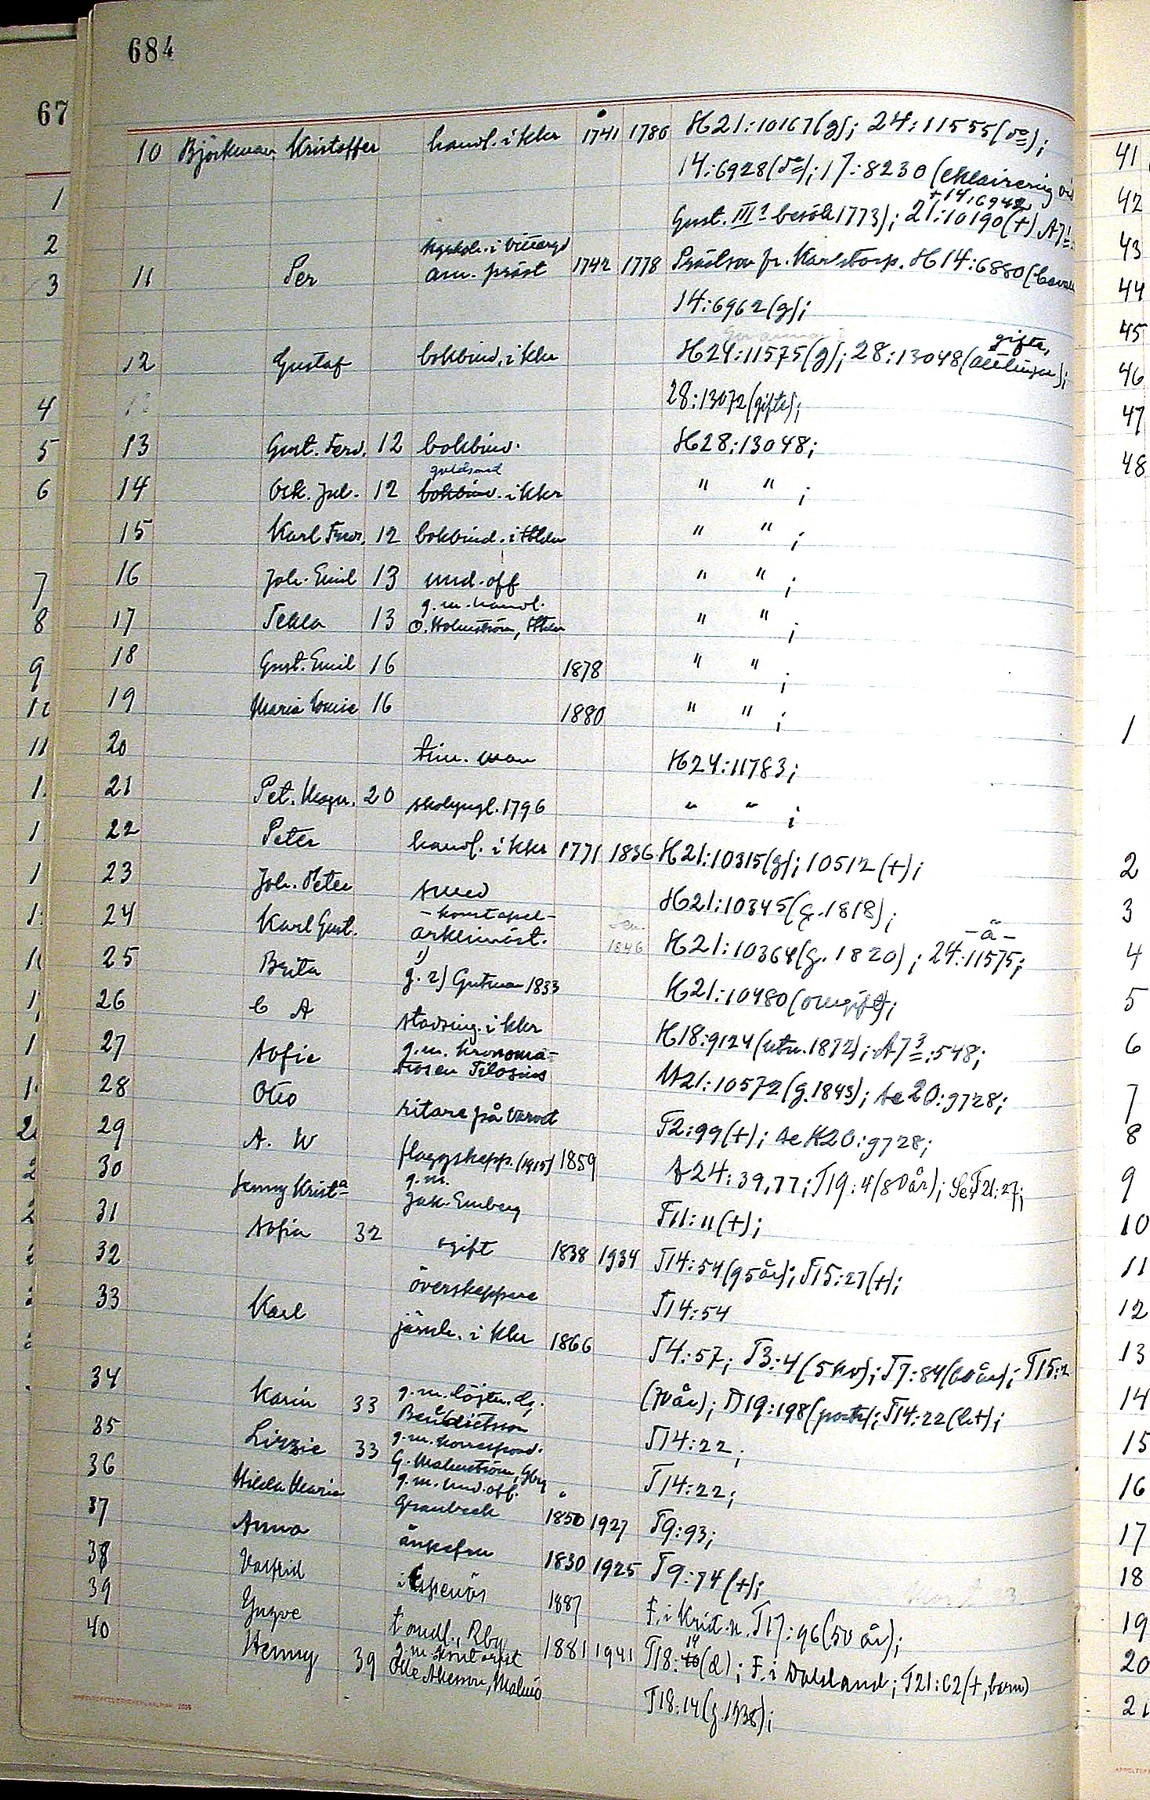 684
67
10 Björkman, Kristoffer handl. i Kkr 1741 1786 H21:10167(g); 24:11555(d=);
14:6928(d=); 17:8230(eklairering vid
+14:6942
Gust. III:s besök 1773); 21:10190(+) A7
11 Per am. präst 1742 1778 Prästson fr. Karlstorp. H14:6880(
14:6962(g);
gifte,
12 Gustaf bokbind. i Kkr H24:11575(g); 28:13048(ättlingar);
28:13072(gifte);
13 Gust. Ferd. 12 bokbind. H28:13048;
guldsmed
14 Osk. Jul. 12 bokbind. i Kkr " " ;
15 Karl Fredr. 12 bokbind. i " " ;
16 Joh. Emil 13 und.off " " ;
g.m. handl.
17 Tekla 13 O. Holmström, " " ;
18 Gust. Emil 16 1878 " " ;
19 Maria Louise 16 1880 " " ;
20 tim. man H24:11783;
21 Pet. Magn. 20 skolyngl. 1796 " " ;
22 Peter handl. i Kkr 1771 1836 H21:10315(g); 10512(+);
23 Joh. Peter smed H21:10345(g.1818);
- konstapel - - ä -
24 Karl Gust. arklimäst. 1846 H21:10364(g.1820); 24:11575;
25 Brita g. 2) Gutman 1833 H21:10480(omgift);
26 C A stadsing. i Kkr H18:9124(utn.1872); A7:548;
27 Sofie g.m. kronoma-
trosen Filosius H21:10572(g.1843); Se 20:9728;
28 Otto ritare på varvet T2:99(+); Se H20:9728;
29 A. W flaggskepp. (1915) 1859 A24:39,77; T19:4(80år); Se T21:27;
30 Jenny Krist:a g.m.
Jak. Emberg T11:11(+);
31 Sofia 32 ogift 1838 1934 T14:54(95år); T15:27(+);
32 överskeppare T14:54
33 Karl järnh. i Kkr 1866 T4:57; T3:4(50); T7:84(60år); T15:2
(70år); T19:198(portr); T14:22(b+);
34 Karin 33 g.m. löjtn. G.
Benedictsson T14:22;
35 Lizzie 33 g.m. korrespond.
G. Malmström, Gbg T14:22;
36 Hilda Maria g.m. und.off.
Granbeck 1850 1927 T9:93;
37 Anna änkefru 1830 1925 T9:74(+);
38 Valfrid i Espenäs 1887 F. i Krist.n. T17:96(50år);
39 Yngve tandl., Rby 1881 1941 T18:14(d); F. i Dalsland; T21:62(+, barn)
40 Henny 39 g.m. konstarkit
Olle Åkesson, Malmö T18:14(g.1938);
1
2
3
4
5
6
7
8
9
11
41
42
43
44
45
46
47
48
1
2
3
4
5
6
7
8
9
10
11
12
13
14
15
16
17
18
19
20